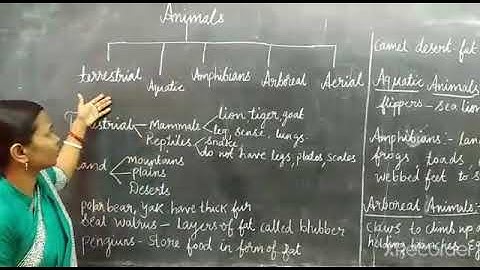 Animals
terrestrial Aquatic Amphibians Arboreal Aerial
Terrestrial - Mammals lion tiger, goat
leg, sense, lungs
Reptiles snake
do not have legs, plates, scales
Land mountains
plains
Deserts
polar bear, yak have thick fur
Seal walrus - layers of fat called blubber
penguins - store food in form of fat
camel desert fat
Aquatic Animals
flippers - sea lion
Amphibians :- lan
frogs, toads,
webbed feet to s
Arboreal Animals :-
claws to climb up a
holding branches - eg
XRecorder